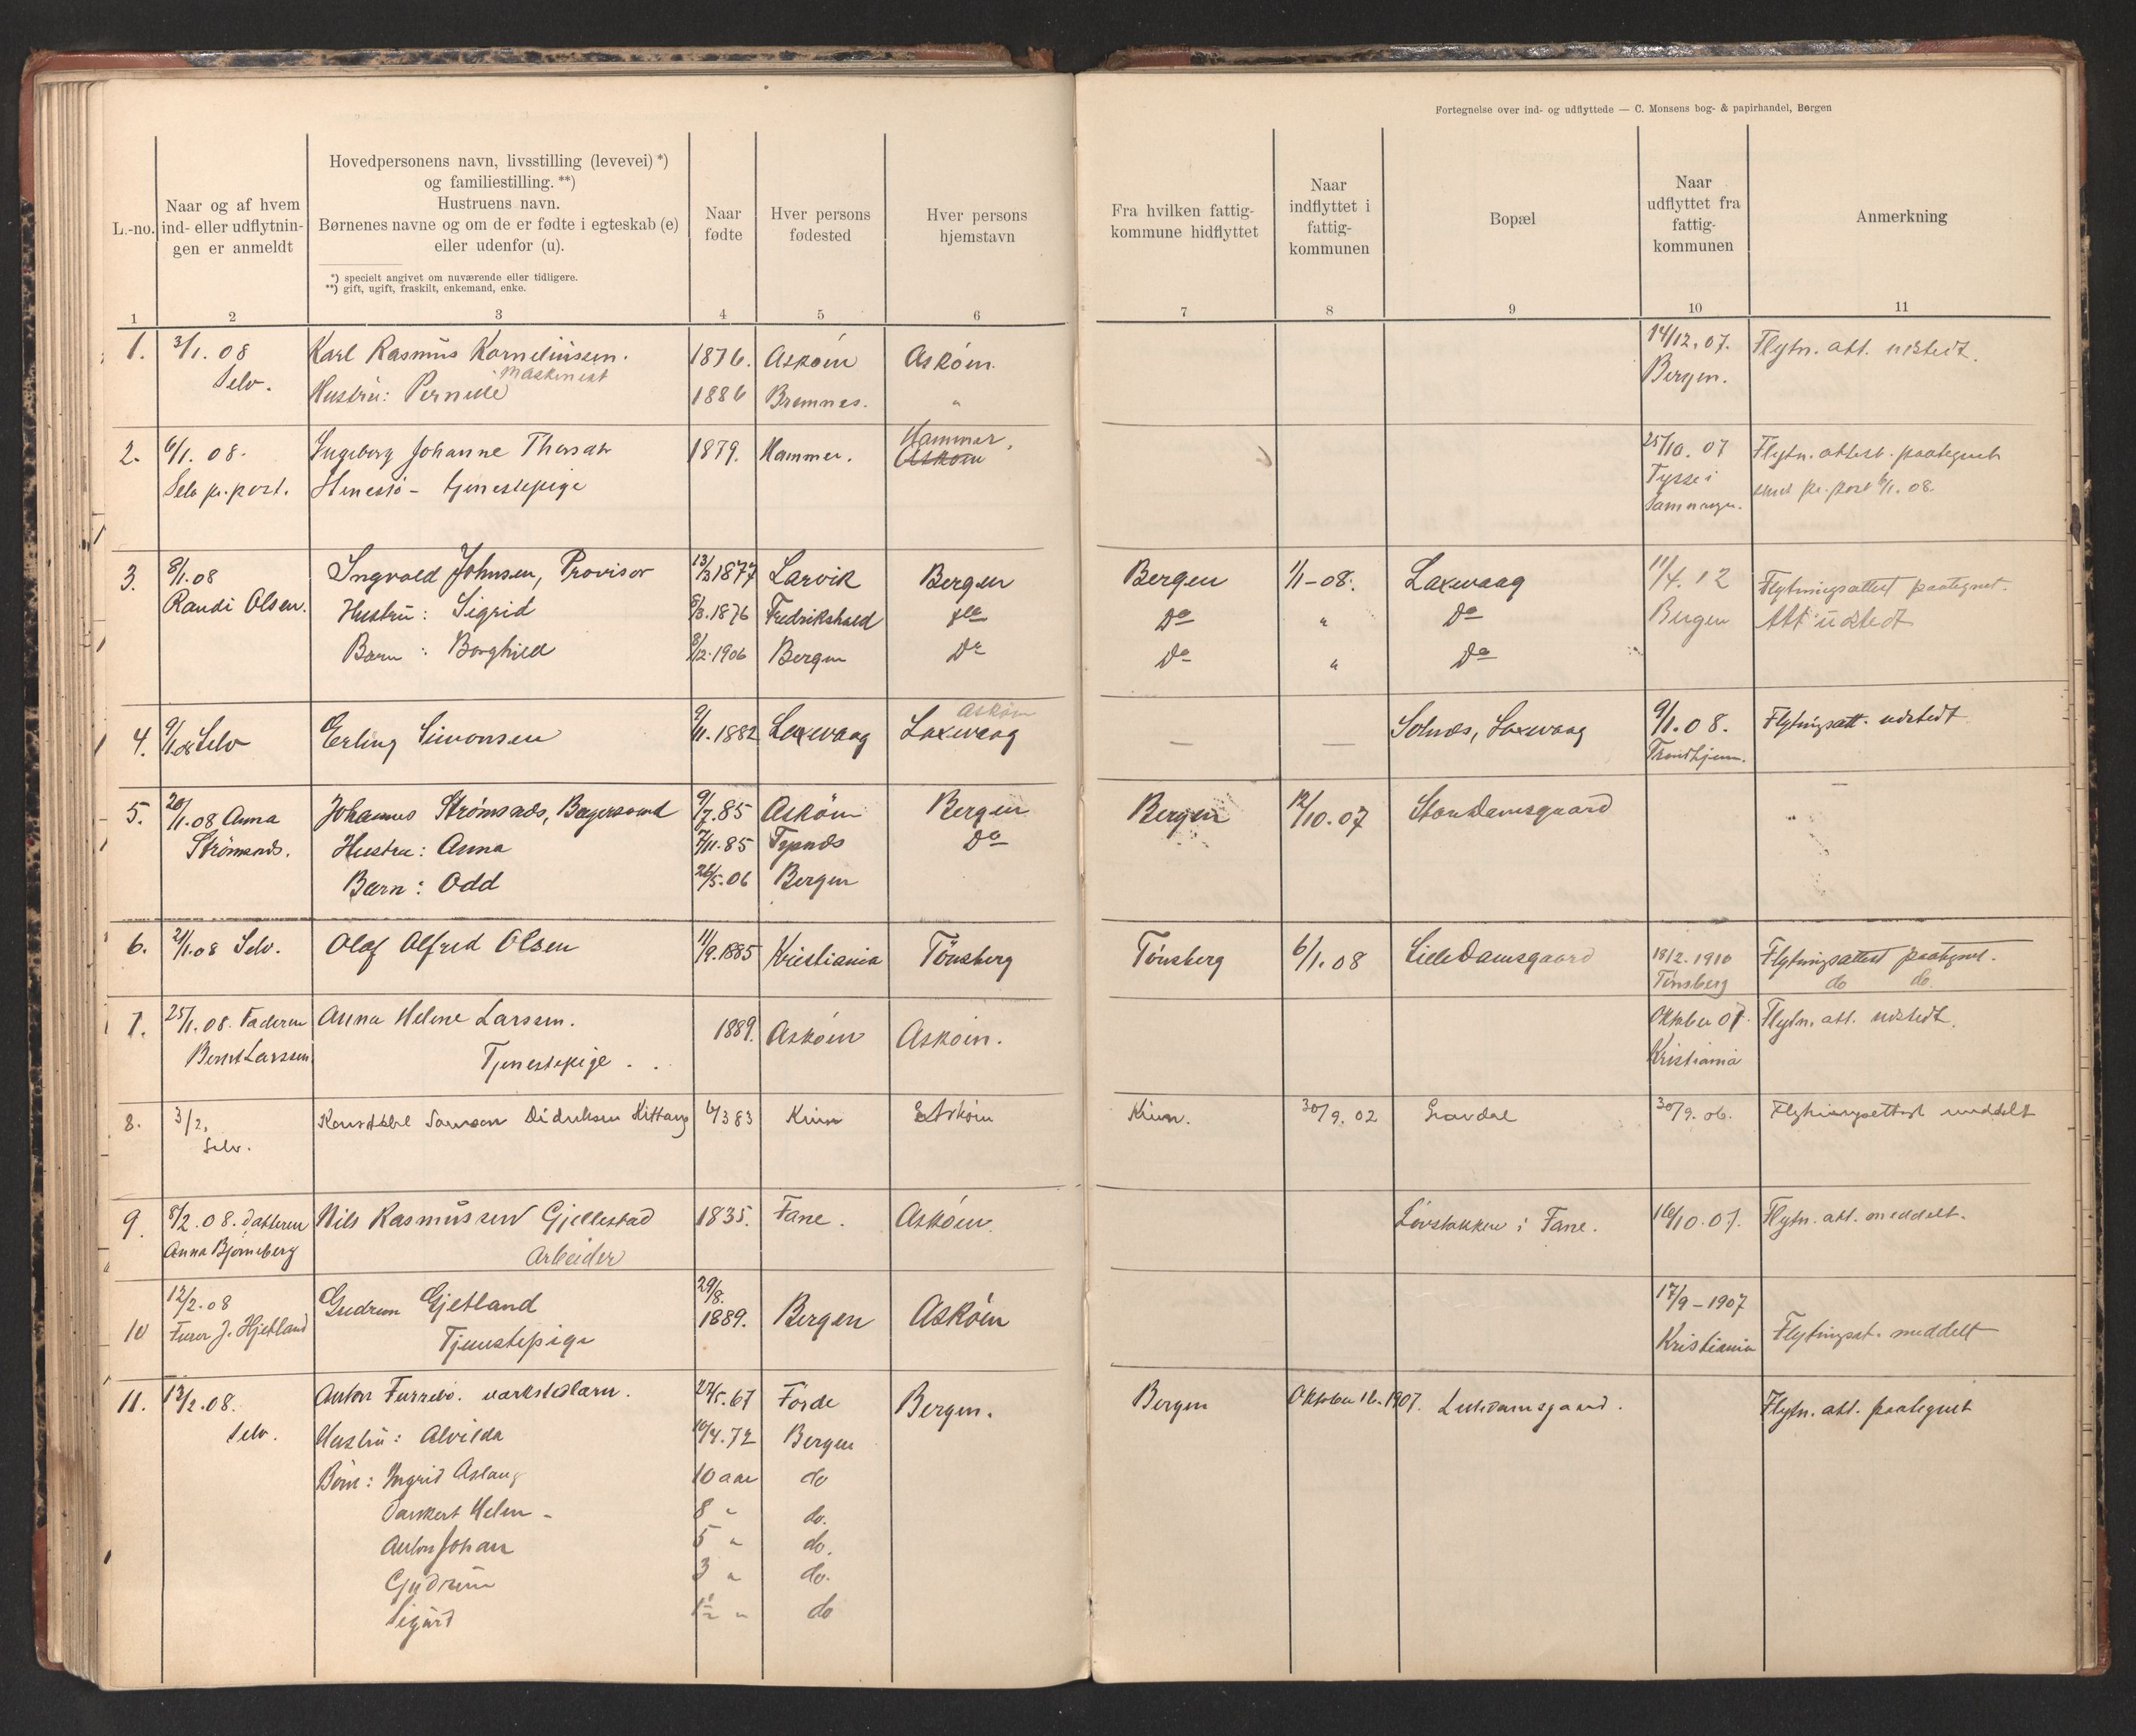 Fortegnelse over ind- og udflyttede — C. Monsens bog- & papirhandel, Bergen
L.-no.
Naar og af hvem
ind- eller udflytnin-
gen er anmeldt
Hovedpersonens navn, livsstilling (levevei) *)
og familiestilling. **)
Hustruens navn.
Børnenes navne og om de er fødte i egteskab (e)
eller udenfor (u).
*) specielt angivet om nuværende eller tidligere.
**) gift, ugift, fraskilt, enkemand, enke.
Naar
fødte
Hver persons
fødested
Hver persons
hjemstavn
Fra hvilken fattig-
kommune hidflyttet
Naar
indflyttet i
fattig-
kommunen
Bopæl
Naar
udflyttet fra
fattig-
kommunen
Anmerkning
1 2 3 4 5 6 7 8 9 10 11
1. 3/1. 08 Karl Rasmus Korneliussen. 1876. Askøen Askøen. 14/12. 07. Flytn. att. udstedt.
Selv. maskinist
Hustru: Pernille 1886 Bremnes. " Bergen.
2. 6/1. 08. Ingeborg Johanne 1879. Hammer. Hammer. 25/10. 07 Flytn. attest. paategnet
Askøen
Selv pr. post. tjenestepige Tysse i sendt pr. post 6/1. 08.
Samnanger.
3. 8/1.08 Ingvald Johnsen, Provisor 13/3 1877 Larvik Bergen Bergen 1/1-08. Laxevaag 11/4. 12 Flytningsattest paategnet.
Randi Olsen. Hustru: Sigrid 8/3.1876 Fredrikshald do do " do Bergen Att udstedt
Barn: Borghild 3/12.1906 Bergen do do " do
4. 9/1.08 Selv Erling Simonsen 9/11.1882 Laxevaag Askøen Laxevaag — — Solnæs, Laxevaag 9/1. 08. Flytningsatt. udstedt
Trondhjem.
5. 20/1.08 Anna Johannes Strømsnæs, Bøyersvend 9/7.85 Askøen Bergen Bergen 12/10. 07 Store Damsgaard —
Strømsnæs. Hustru: Anna 7/11.85 Tysnæs do
Barn: Odd 26/5.06 Bergen
6. 21/1.08 Selv. Olaf Alfred Olsen 11/9.1885 Kristiania Tönsberg Tönsberg 6/1. 08 Lille Damsgaard 18/2. 1910 Flytningsattest paategnet.
Tönsberg do do.
7. 25/1. 08. Faderen Anna Helene Larssen. 1889. Askøen Askøen. Oktober 07. Flytn. att. udstedt.
Bernt Larssen Tjenestepige. Kristiania
8. 3/2, Konstabel Samson Didriksen Kittang 6/3 83 Kinn Askøen Kinn. 30/9. 02 Gravdal 30/9. 06. Flytningsattest meddelt
Selv.
9. 8/2. 08. datteren Nils Rasmussen Gjellestad 1835. Fane. Askøen. Løvstakken i Fane. 16/10. 07. Flytn. att. meddelt.
Anna Bjørneberg Arbeider
10 12/2. 08 Gudrun Gjetland 29/8. 1889. Bergen Askøen 17/9 - 1907 Flytningsat. meddelt
J. Hjetland Tjenestepige Kristiania
11. 13/2. 08. Anton verkstedarb. 27/5. 67 Førde Bergen. Bergen Oktober 16. 1907. Lille Damsgaard. Flytn. att. paategnet
Selv. Hustru: Alvilda 10/4. 72 Bergen
Børn: Ingrid Aslaug 10 aar do
Helen 8 " do.
Anton Johan 5 " do.
Gudrun 3 " do.
Sigurd 1/2 " do